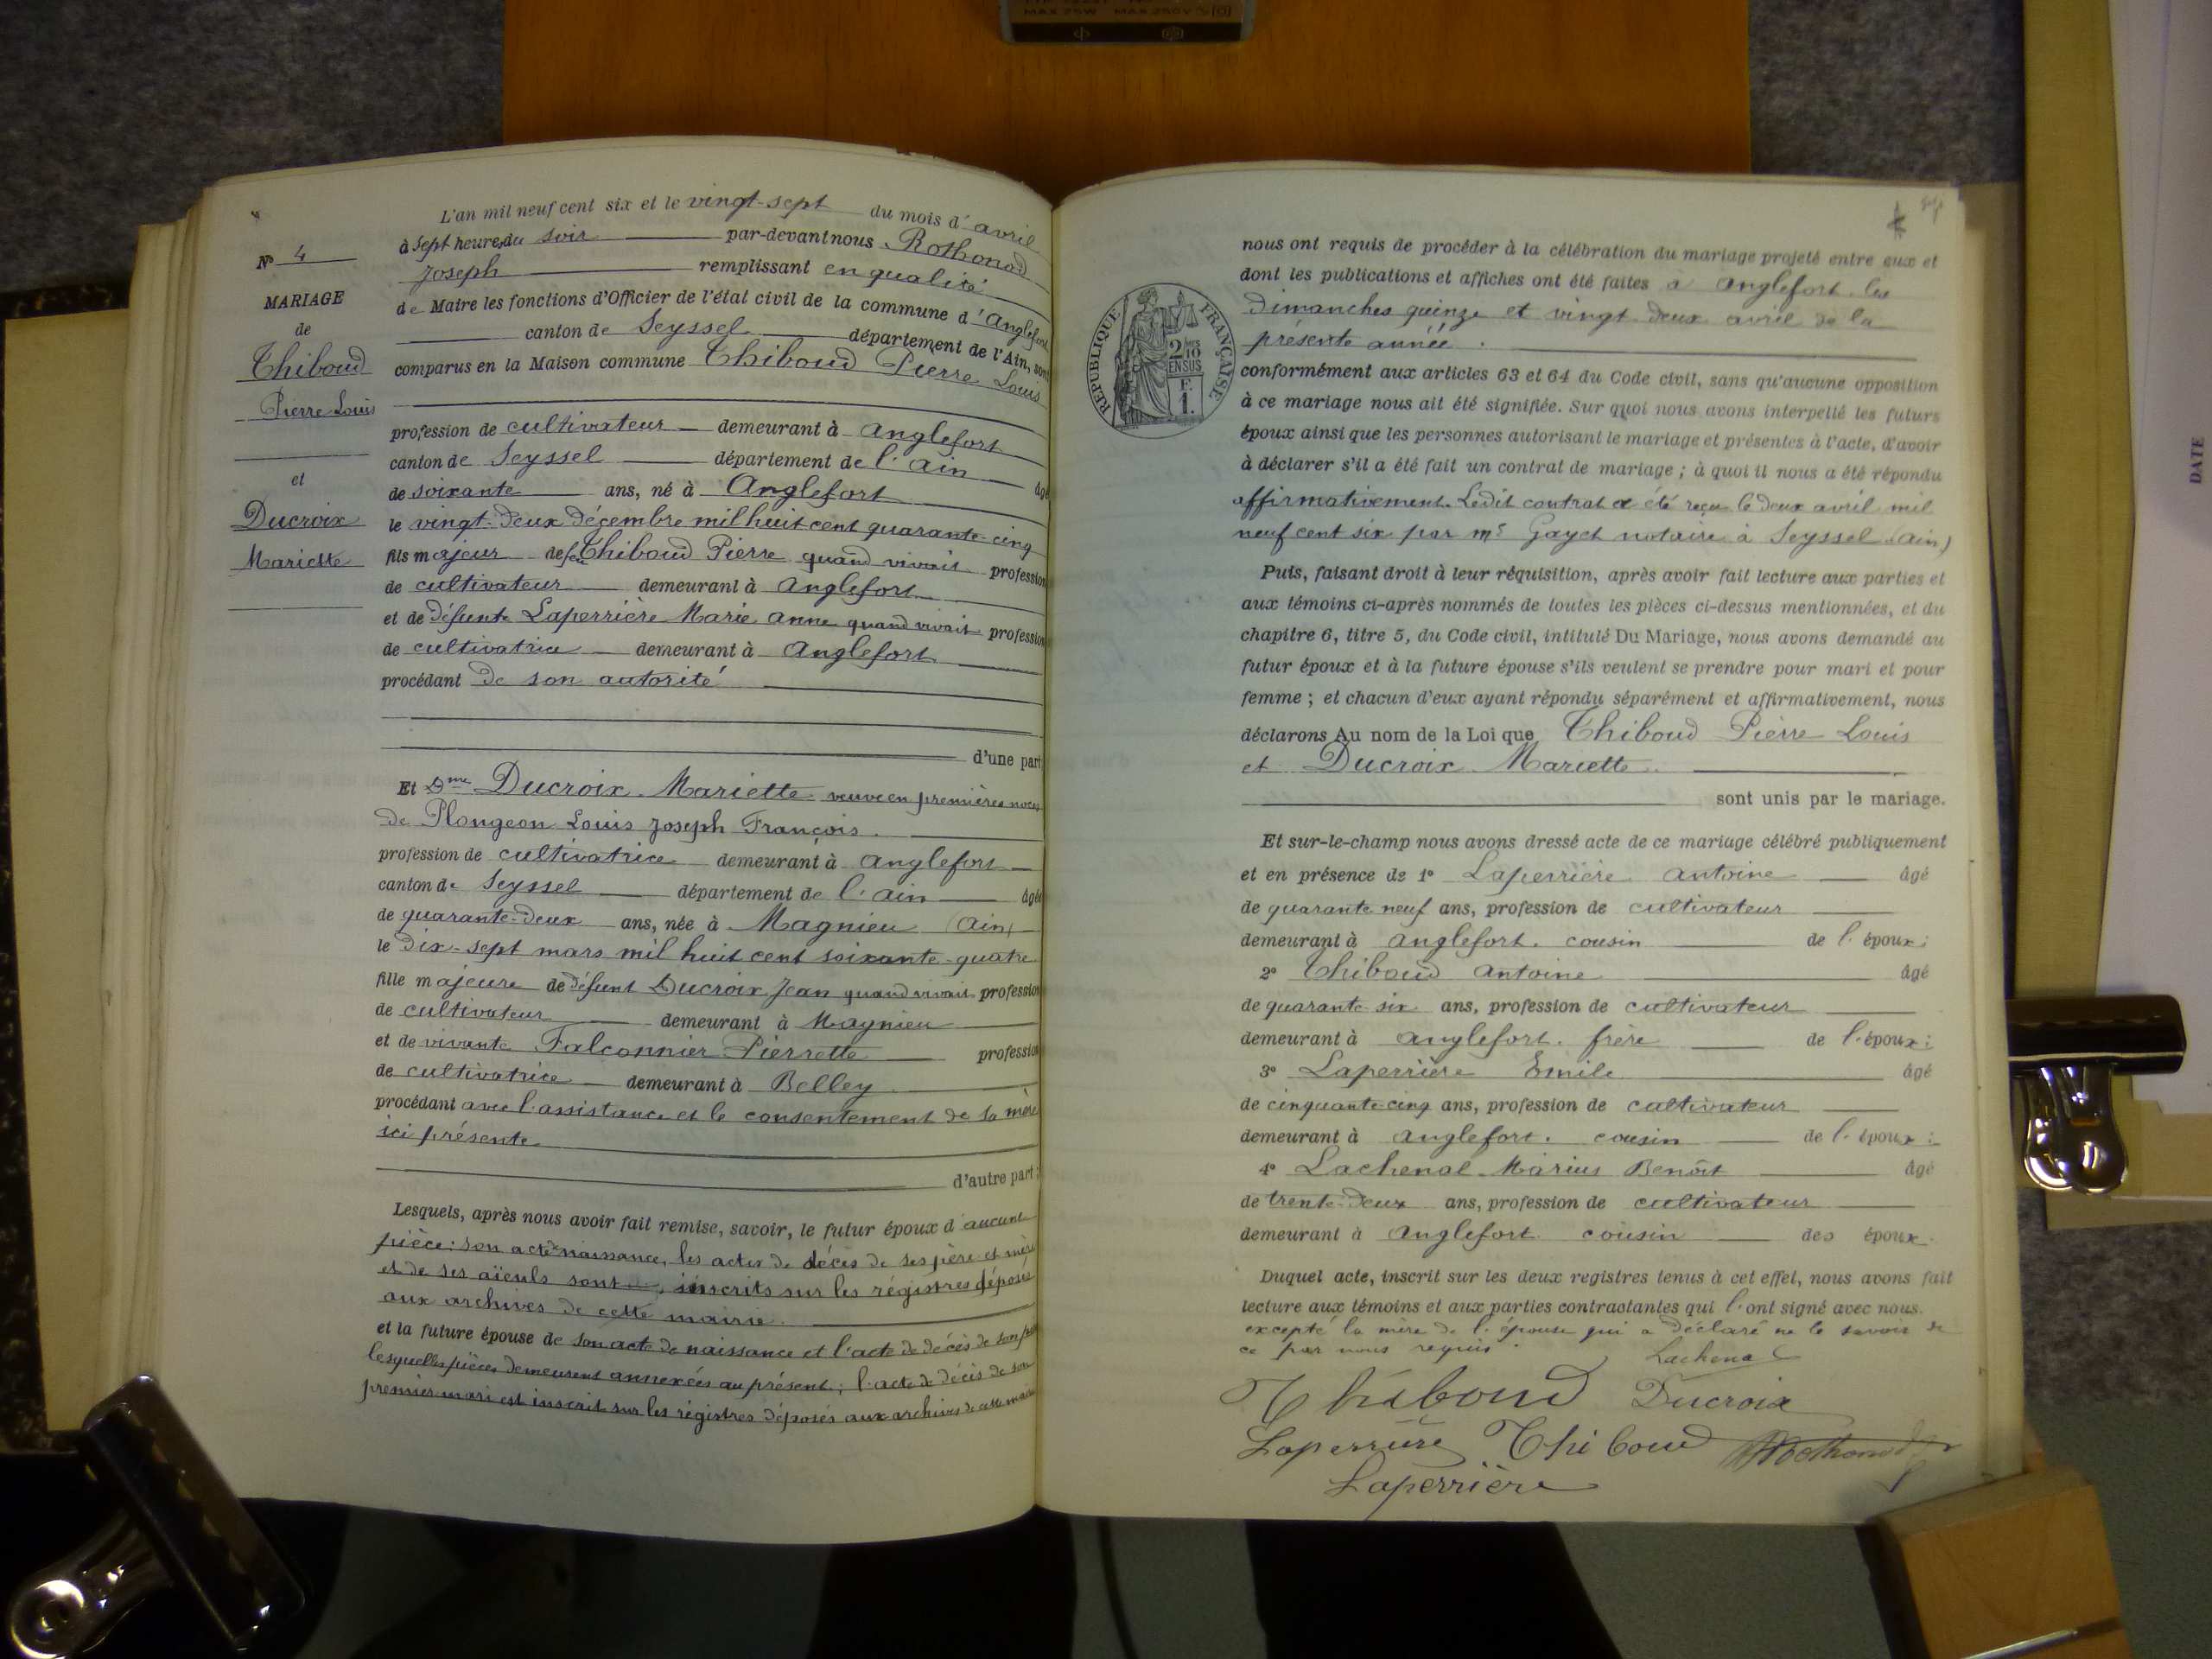 L'an mil neuf cent six et le vingt-sept du mois d'avril
à sept heures du soir par-devant nous Rothonod
Joseph remplissant en qualité
de Maire les fonctions d'Officier de l'état civil de la commune d'Anglefort
canton de Seyssel département de l'Ain, sont
comparus en la Maison commune Thiboud Pierre Louis
profession de cultivateur demeurant à Anglefort
canton de Seyssel département de l'Ain âgé
de soixante ans, né à Anglefort
le vingt-deux décembre mil huit cent quarante-cinq
fils majeur de feu Thiboud Pierre quand vivait profession
de cultivateur demeurant à Anglefort
et de défunte Laperrière Marie Anne quand vivait profession
de cultivatrice demeurant à Anglefort
procédant de son autorité
d'une part
Et Dme Ducroix Mariette veuve en premières noces
de Plongeon Louis Joseph François.
profession de cultivatrice demeurant à Anglefort
canton de Seyssel département de l'Ain âgée
de quarante-deux ans, née à Magnieu (Ain)
le dix-sept mars mil huit cent soixante-quatre
fille majeure de défunt Ducroix Jean quand vivait profession
de cultivateur demeurant à Magnieu
et de vivante Falconnier Pierrette profession
de cultivatrice demeurant à Belley
procédant avec l'assistance et le consentement de sa mère
ici présente
d'autre part ;
Lesquels, après nous avoir fait remise, savoir, le futur époux d'aucune
pièce : son acte naissance, les actes de décès de ses père et mère
et de ses aïeuls sont inscrits sur les régistres déposés
aux archives de cette mairie.
et la future épouse de son acte de naissance et l'acte de décès de son père
lesquelles pièces demeurent annexées au présent ; l'acte de décès de son
premier mari est inscrit sur les régistres déposés aux archives de cette mairie
No 4
MARIAGE
de
Thiboud
Pierre Louis
et
Ducroix
Mariette
nous ont requis de procéder à la célébration du mariage projeté entre eux et
dont les publications et affiches ont été faites à Anglefort les
dimanches quinze et vingt deux avril de la
présente année.
conformément aux articles 63 et 64 du Code civil, sans qu'aucune opposition
à ce mariage nous ait été signifiée. Sur quoi nous avons interpellé les futurs
époux ainsi que les personnes autorisant le mariage et présentes à l'acte, d'avoir
à déclarer s'il a été fait un contrat de mariage ; à quoi il nous a été répondu
affirmativement. Ledit contrat a été reçu le deux avril mil
neuf cent six par me Gayet notaire à Seyssel (Ain)
Puis, faisant droit à leur réquisition, après avoir fait lecture aux parties et
aux témoins ci-après nommés de toutes les pièces ci-dessus mentionnées, et du
chapitre 6, titre 5, du Code civil, intitulé Du Mariage, nous avons demandé au
futur époux et à la future épouse s'ils veulent se prendre pour mari et pour
femme ; et chacun d'eux ayant répondu séparément et affirmativement, nous
déclarons Au nom de la Loi que Thiboud Pierre Louis
et Ducroix Mariette.
sont unis par le mariage.
Et sur-le-champ nous avons dressé acte de ce mariage célébré publiquement
et en présence de 1° Laperrière Antoine âgé
de quarante neuf ans, profession de cultivateur
demeurant à Anglefort. cousin de l'époux ;
2° Thiboud Antoine âgé
de quarante-six ans, profession de cultivateur
demeurant à Anglefort. frère de l'époux ;
3° Laperrière Emile âgé
de cinquante-cinq ans, profession de cultivateur
demeurant à Anglefort. cousin de l'époux ;
4° Lachenal Marius Benoit âgé
de trente-deux ans, profession de cultivateur
demeurant à Anglefort cousin des époux.
Duquel acte, inscrit sur les deux registres tenus à cet effet, nous avons fait
lecture aux témoins et aux parties contractantes qui l'ont signé avec nous.
excepté la mère de l'épouse qui a déclaré ne le savoir de
ce par nous requis.
Lachenal
Thiboud Ducroix
Laperrière Thiboud Rothonod
Laperrière
RÉPUBLIQUE FRANÇAISE
2/10
EN SUS
F.
1.
DATE
MAX 25W MAX 250V